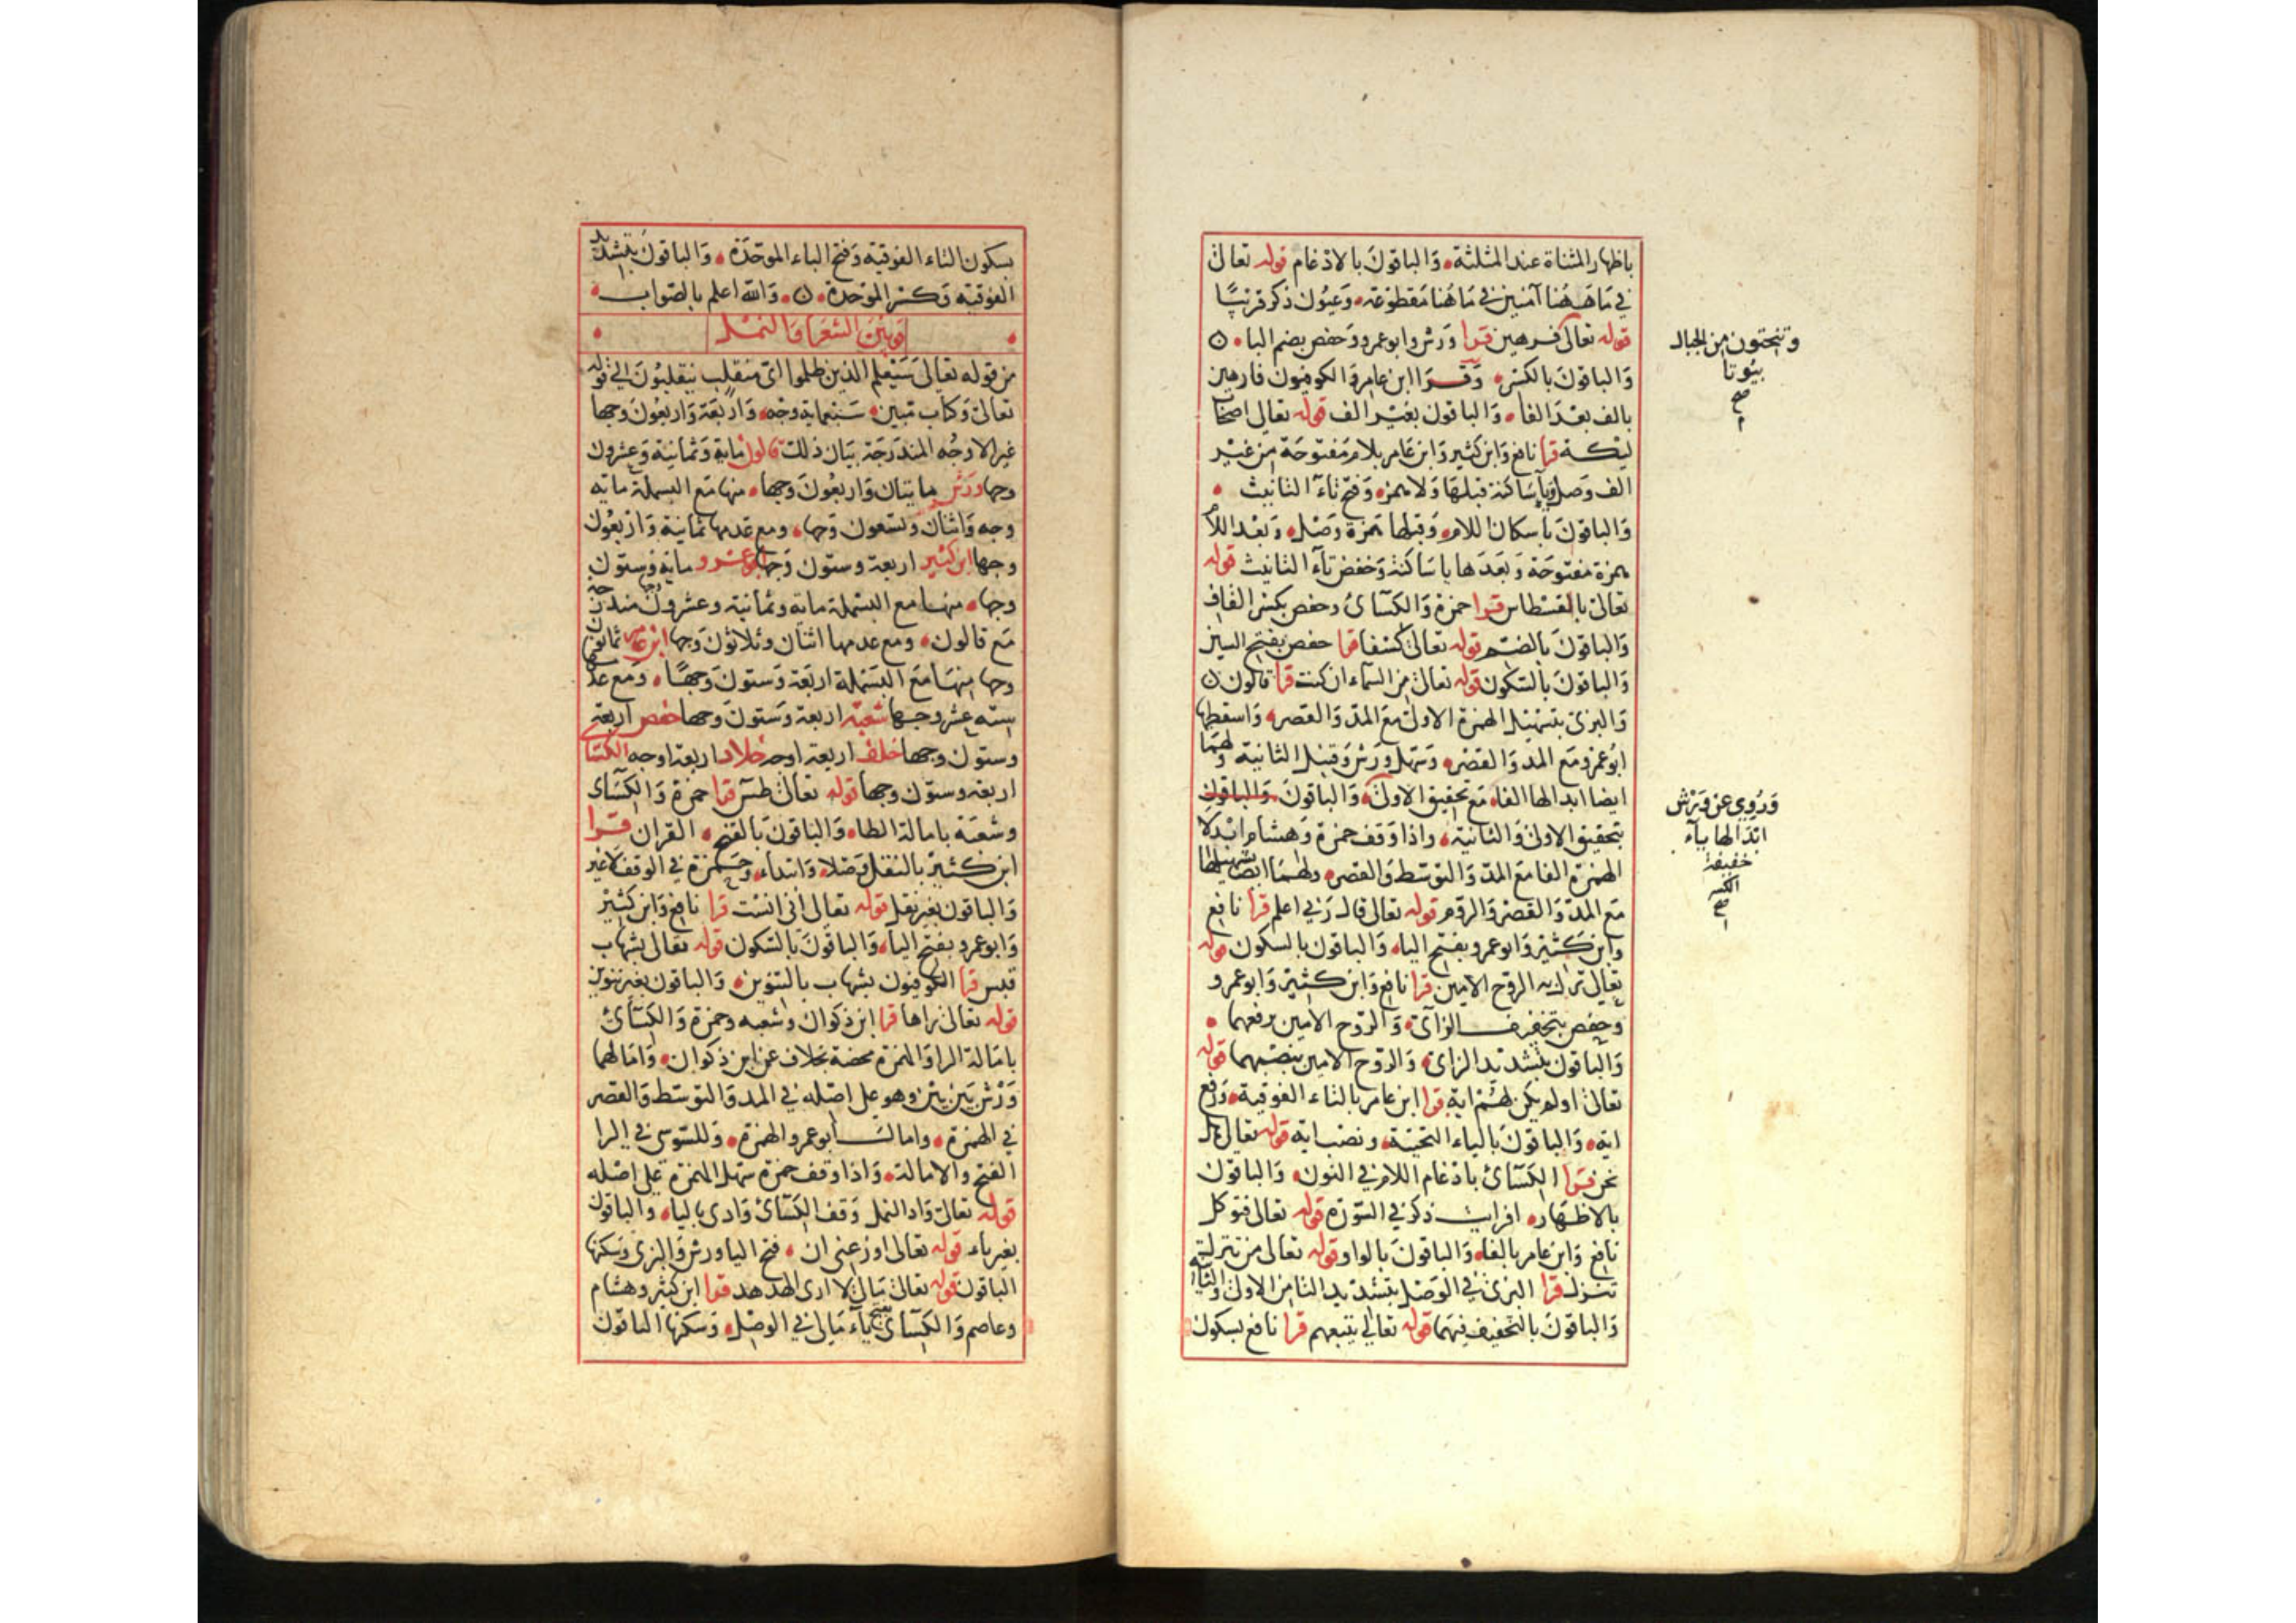 باظهار المثناة عند المثلثة والباقون بالادغام قوله تعالى
في ما ههنا آمنين في ما هنا مقطوعة وعيون ذكر قريبًا
قوله تعالى فرهين قرا ورش وابو عمرو وحفص بضم البا
والباقون بالكسر وقرا ابن عامر والكوفيون فارهين
بالف بعد الفا والباقون بغير الف قوله تعالى اصحاب
ليكة قرا نافع وابن كثير وابن عامر بلام مفتوحة من غير
الف وصل وياء ساكنة قبلها ولا همزه وفتح تاء التانيث
والباقون باسكان اللام وقبلها همزة وصل وبعد اللام
همزة مفتوحة وبعدها يا ساكنة وخفض تاء التانيث قوله
تعالى بالقسطاس قرا حمزة والكسآئ وحفص بكسر القاف
والباقون بالضم قوله تعالى كسفا قرا حفص بفتح السين
والباقون بالسكون قوله تعالى من السماء ان كنت قرا قالون
والبزى بتسهيل الهمزة الاولى مع المد والقصر واسقطها
ابو عمرو مع المد والقصر وسهل ورش وقنبل الثانية ولهما
ايضا ابدالها الفا مع تحقيق الاولى والباقون والباقون
بتحقيق الاولى والثانية واذا وقف حمزة وهشام ابدلا
الهمزة الفا مع المد والتوسط والقصر ولهما ايضا تسهيلها
مع المد والقصر والروم قوله تعالى قال ربي اعلم قرا نافع
وابن كثير وابو عمرو بفتح اليا والباقون بالسكون قوله
تعالى نزل به الروح الامين قرا نافع وابن كثير وابو عمرو
وحفص بتخفيف الزاى والروح الامين برفعهما
والباقون بتشديد الزاى والروح الامين بنصبهما قوله
تعالى اولم يكن لهم اية قرا ابن عامر بالتاء الفوقية ورفع
اية والباقون بالياء التحتية ونصب اية قوله تعالى هل
نحن قرا الكسآئ بادغام اللام في النون والباقون
بالاظهار افرايت ذكر في السورة قوله تعالى فتوكل
نافع وابن عامر بالفا والباقون بالواو قوله تعالى من تنزلت
تنزل قرا البزى في الوصل بتشديد التا من الاولى والثانية
والباقون بالتخفيف فيهما قوله تعالى يتبعهم قرا نافع بسكون
وتنحتون من الجبال
بيوتا
صح
وروي عن ورش
ابدالها ياء
خفيفة
الكسر
صح
بسكون التاء الفوقية وفتح الباء الموحدة والباقون بتشديد
الفوقية وكسر الموحدة والله اعلم بالصواب
وبين الشعرا والنمل
من قوله تعالى سيعلم الذين ظلموا اى منقلب ينقلبون الى قوله
تعالى وكتاب مبين سبعماية وجه واربعة واربعون وجها
غير الاوجه المندرجة بيان ذلك قالون ماية وثمانية وعشرون
وجها ورش مايتان واربعون وجها منها مع البسملة مايه
وجه واثنان وتسعون وجها ومع عدمها ثمانية واربعون
وجها ابن كثير اربعة وستون وجها ابو عمرو ماية وستون
وجها منها مع البسملة ماية وثمانية وعشرون مندرجة
مع قالون ومع عدمها اثنان وثلاثون وجها ابن عامر ثمانون
وجها منها مع البسملة اربعة وستون وجهًا ومع عدمها
سته عشر وجها شعبة اربعة وستون وجها حفص اربعة
وستون وجها خلف اربعة اوجه خلاد اربعة اوجه الكسآ
اربعة وستون وجها قوله تعالى طس قرا حمزة والكسآى
وشعبة بامالة الطا والباقون بالفتح القران قرا
ابن كثير بالنقل وصلا وابتداء وحمزة في الوقف لا غير
والباقون بغير نقل قوله تعالى انى انست قرا نافع وابن كثير
وابو عمرو بفتح اليا والباقون بالسكون قوله تعالى بشهاب
قبس قرا الكوفيون بشهاب بالتنوين والباقون بغير تنوين
قوله تعالى راها قرا ابن ذكوان وشعبه وحمزة والكسآئ
بامالة الرا والهمزة محضة بخلاف عن ابن ذكوان وامالهما
ورش بين بين وهو على اصله في المد والتوسط والقصر
في الهمزة وامالـ ابو عمرو الهمزة وللسوسي في الرا
الفتح والامالة واذا وقف حمزة سهل الهمزة على اصله
قوله تعالى واد النمل وقف الكسآئ وادى باليا والباقون
بغير ياء قوله تعالى اوزعنى ان فتح اليا ورش والبزى وسكنها
الباقون قوله تعالى مالى لا ارى الهدهد قرا ابن كثير وهشام
وعاصم والكسآى بفتح ياء مالى في الوصل وسكنها الباقون